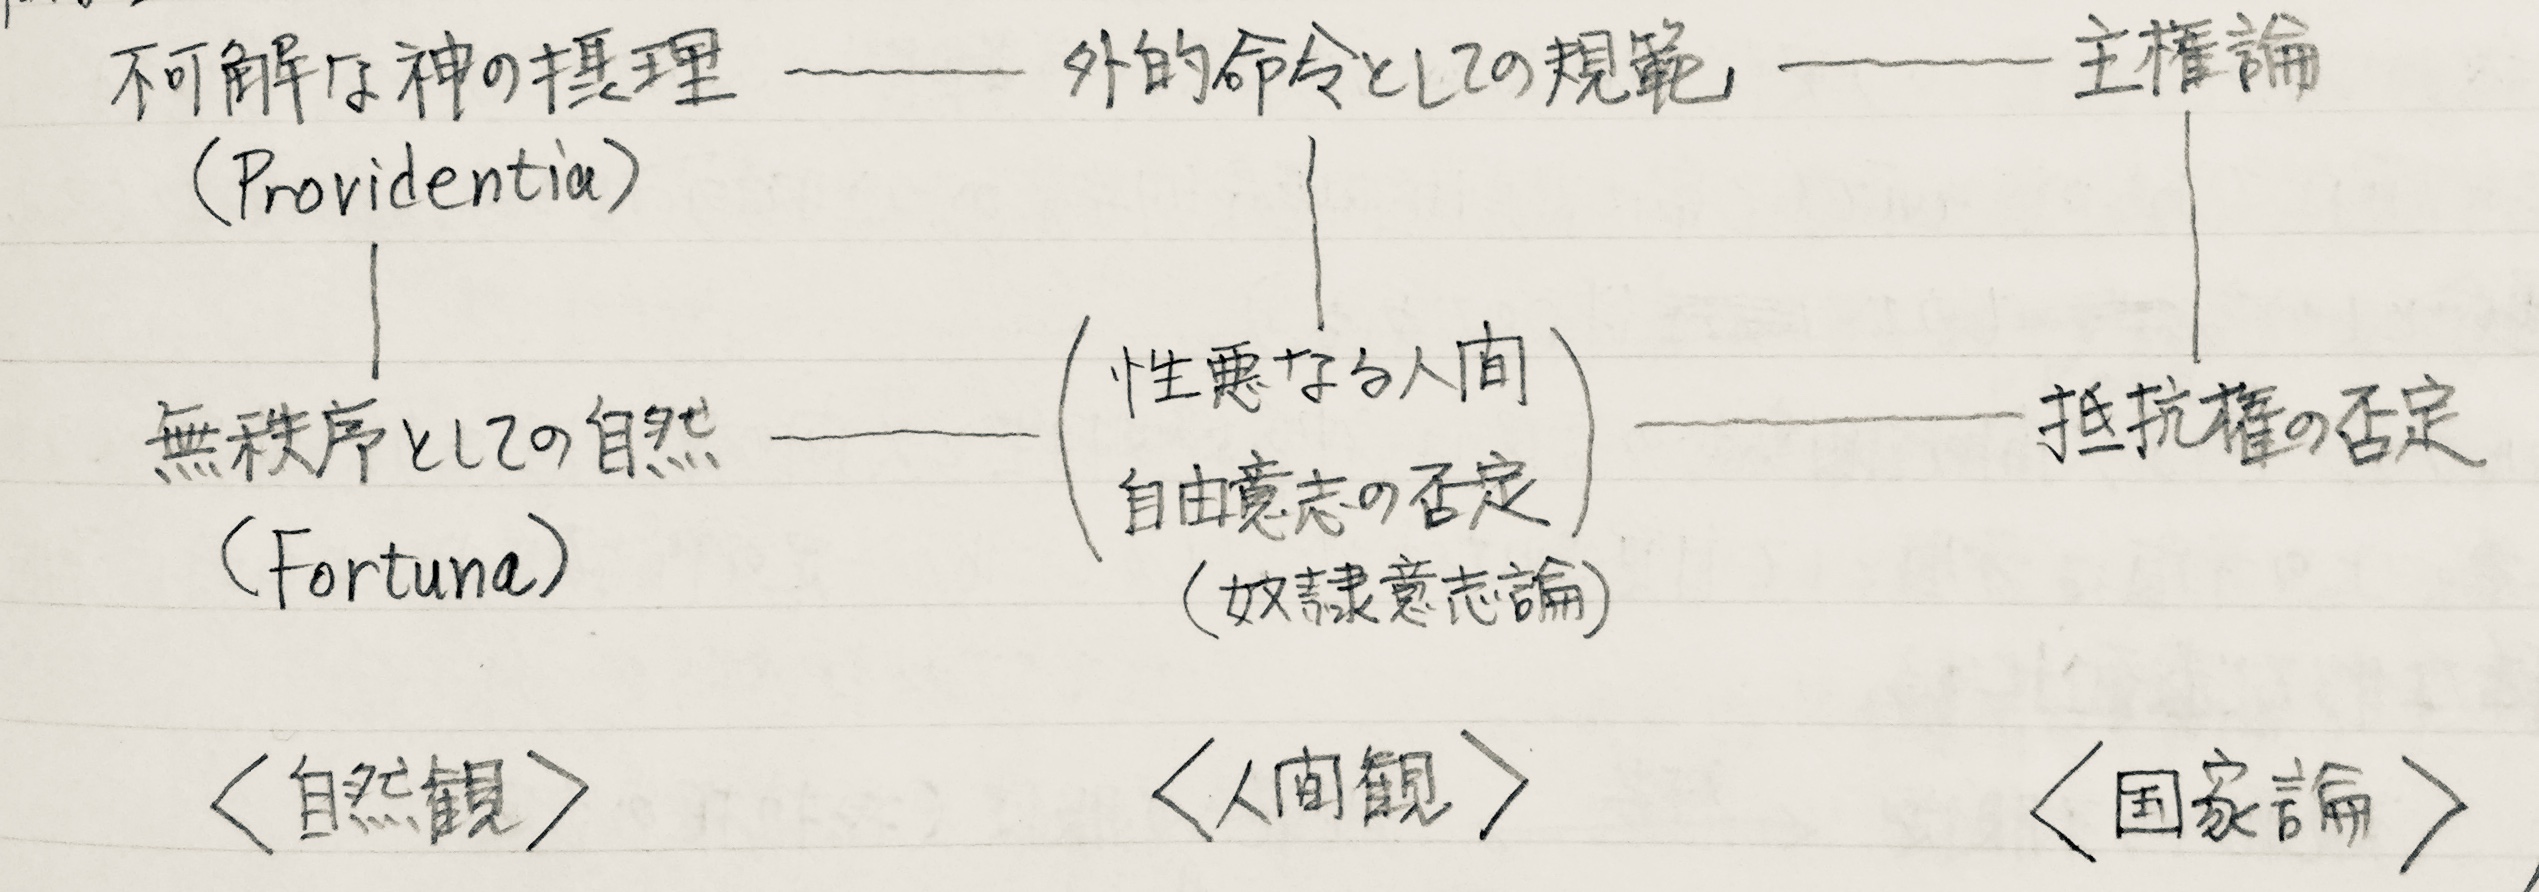 不可解な神の摂理 ― 外的命令としての規範 ― 主権論
(Providentia)
無秩序としての自然 ― (性悪なる人間 自由意志の否定) ― 抵抗権の否定
(Fortuna)
(奴隷意志論)
〈自然観〉 〈人間観〉 〈国家論〉